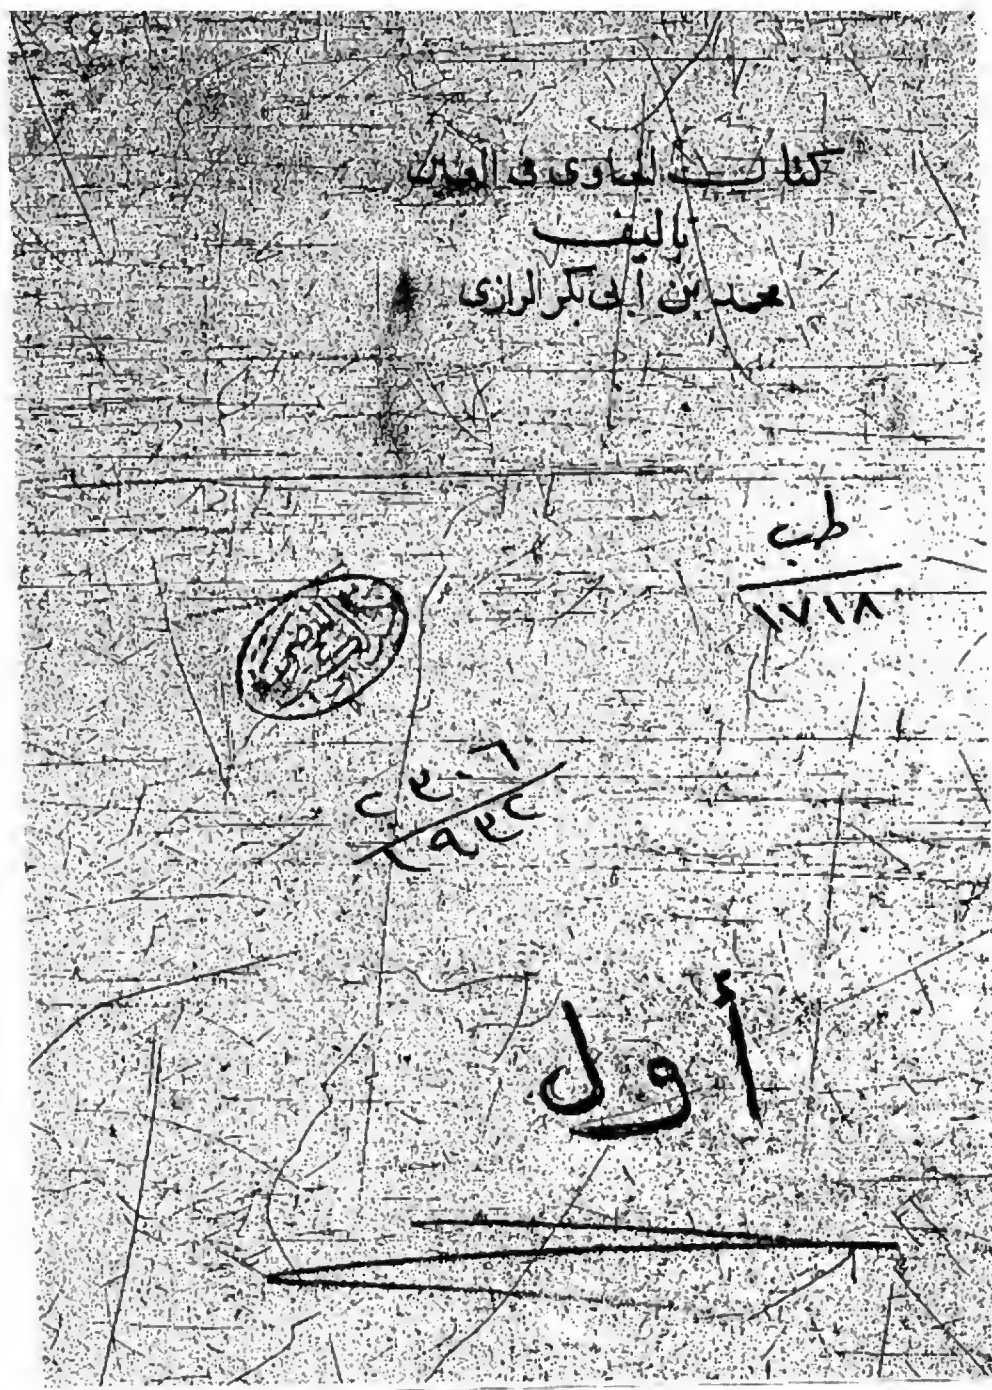 كتاب الحاوى فى العين
تاليف
محمد بن ابى بكر الرازى
طب
١٧١٨
٢٣٠٦
٢٩٣٢
أول